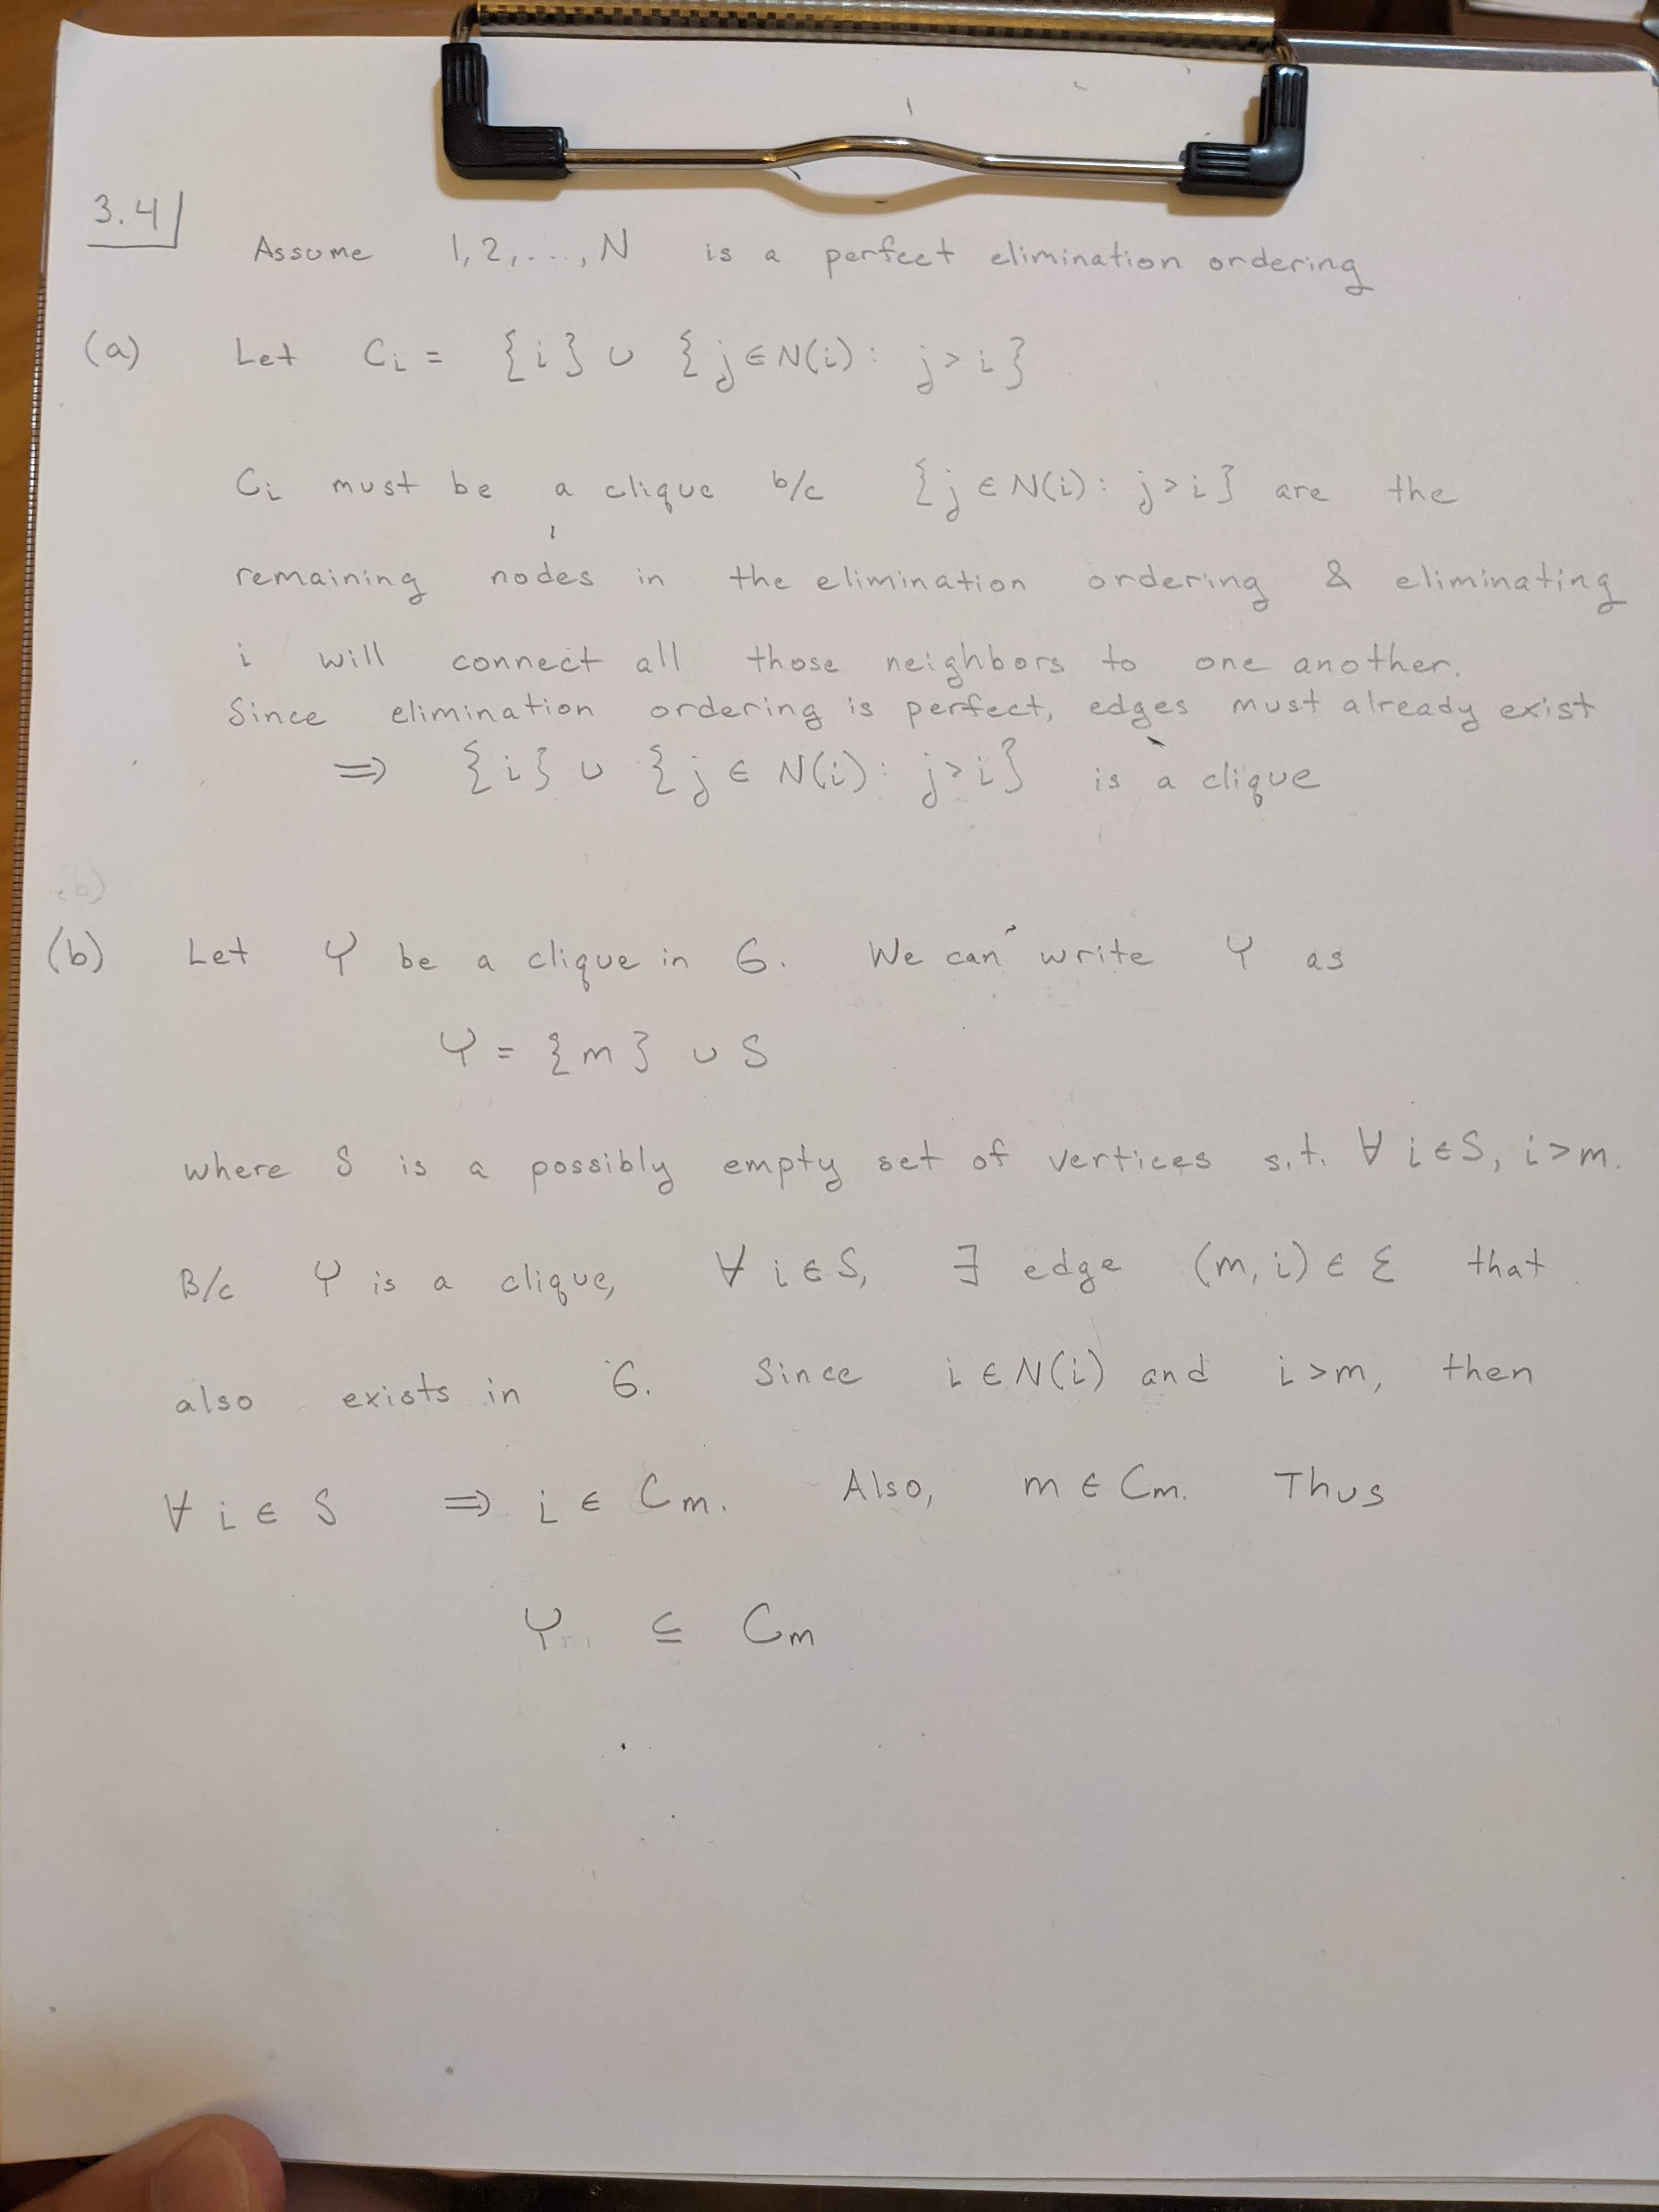 3.4
Assume 1, 2, ..., N is a perfect elimination ordering
(a) Let Cᵢ = {i} ∪ {j ∈ N(i): j > i}
Cᵢ must be a clique b/c {j ∈ N(i): j > i} are the
remaining nodes in the elimination ordering & eliminating
i will connect all those neighbors to one another.
Since elimination ordering is perfect, edges must already exist
⇒ {i} ∪ {j ∈ N(i): j > i} is a clique
(b) Let Y be a clique in G. We can write Y as
Y = {m} ∪ S
where S is a possibly empty set of vertices s.t. ∀ i ∈ S, i > m.
B/c Y is a clique, ∀ i ∈ S, ∃ edge (m, i) ∈ Ɛ that
also exists in G. Since i ∈ N(i) and i > m, then
∀ i ∈ S ⇒ i ∈ Cₘ. Also, m ∈ Cₘ. Thus
Y ⊆ Cₘ